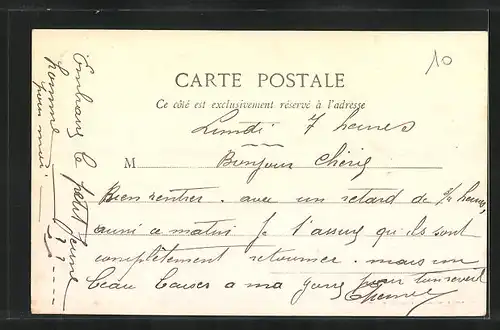 10
CARTE POSTALE
Ce côté est exclusivement réservé à l'adresse
Lundi 7 heures
M Bonjour Chérie
Bien rentrer. avec un retard de
ce matin je t'assure qu'ils sont
complètement retourner. mais un
beau baiser a ma pour
Embrasse le petit jeune
homme
pour moi.